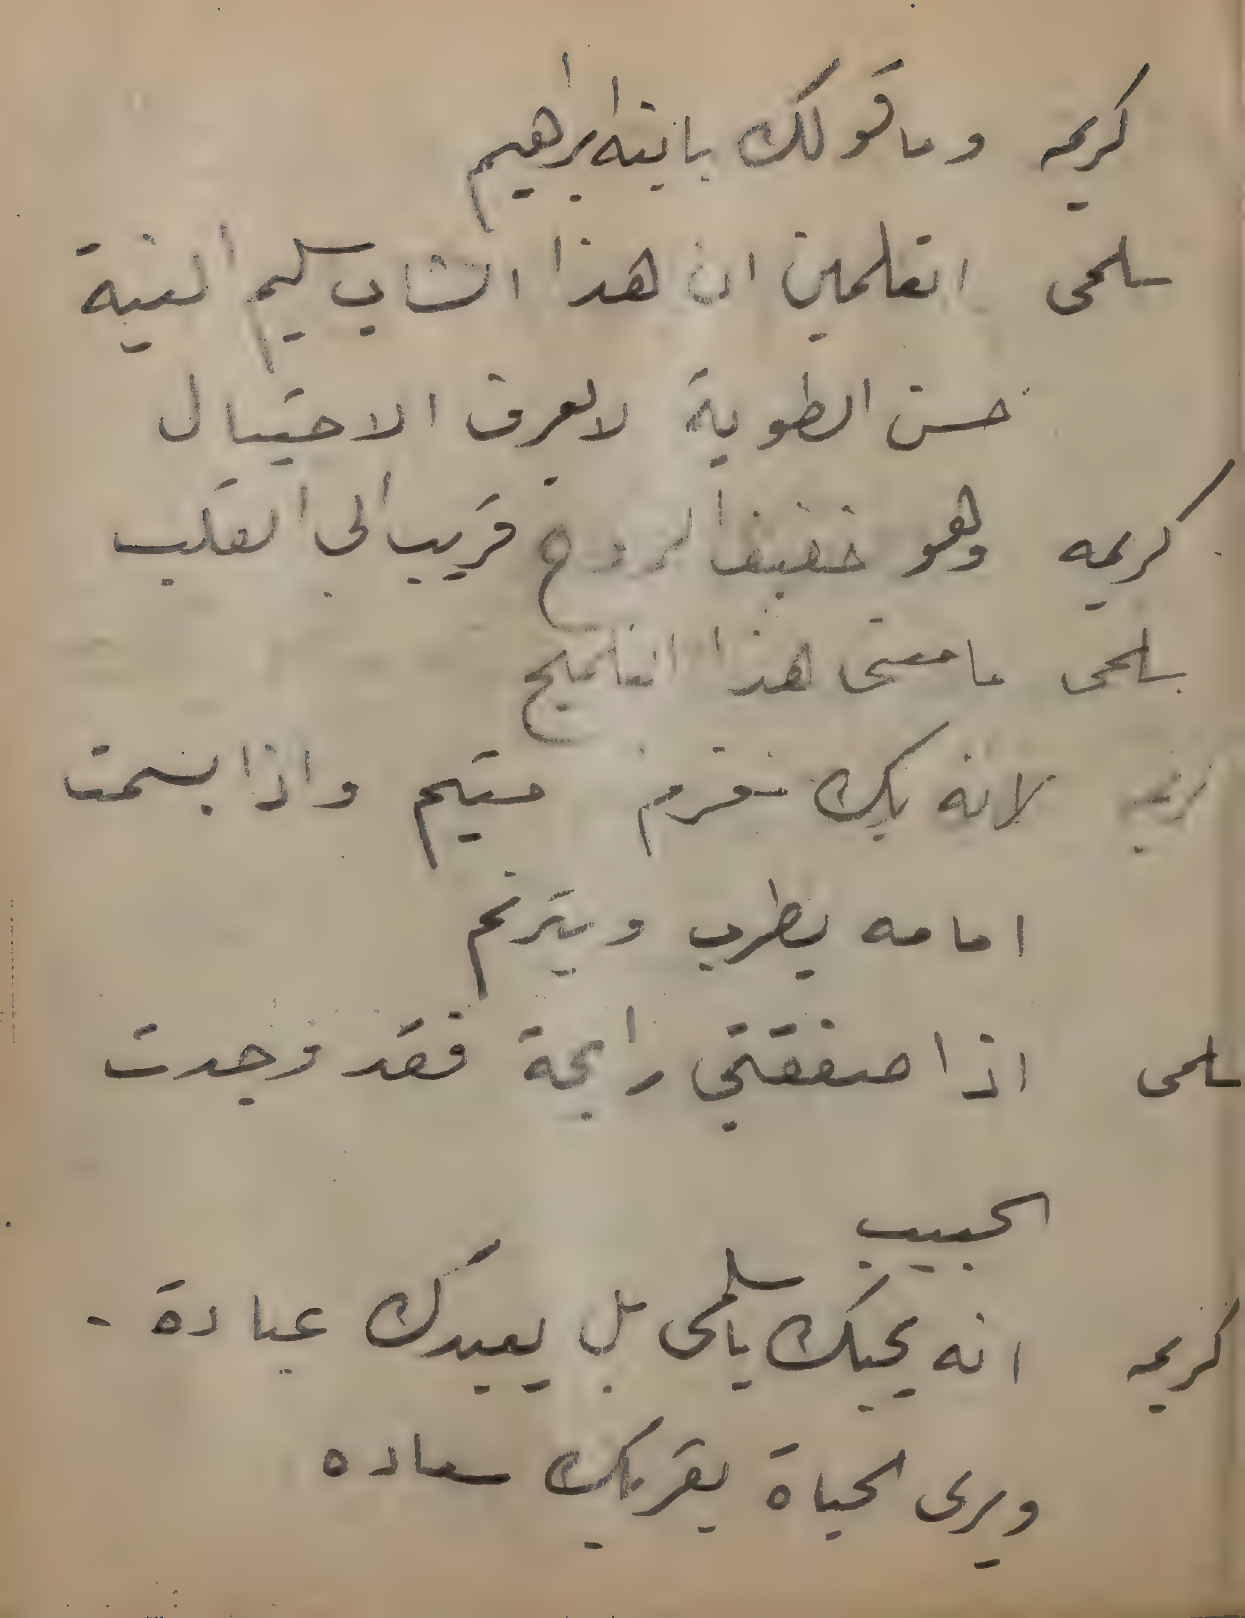 كريمه وما قولك بابنه ابراهيم
سلمى اتعلمين ان هذا الشاب سليم النية
حسن الطوية لا يعرف الاحتيال
كريمه وهو خفيف الروح قريب الى القلب
سلمى ما معنى هذا التلميح
كريمه لانه بك مغرم متيم واذا بسمت
امامه يطرب ويترنم
سلمى اذا صفقتي رابحة فقد وجدت
الحبيب
كريمه انه يحبك يا سلمى بل يعبدك عبادة -
ويرى الحياة بقربك سعاده